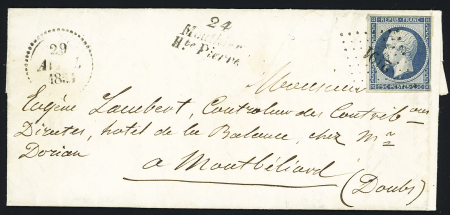 24
Hte Pierre
29
REPUB. FRANC.
Monsieur
Eugène Lambert, Controleur des Contributons
Directes, hôtel de la Balance, chez Mr
Dorian
a Montbéliard
(Doubs)